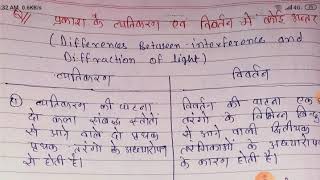 32 AM 0.6KB/s
46
प्रकाश के व्यतिकरण एवं विवर्तन में कोई अन्तर
(Differences Between interference and
Diffraction of light)
व्यतिकरण
विवर्तन
(1) व्यतिकरण की घटना
दो कला संबद्ध स्रोतों
से आने वाले दो प्रथक
प्रथक तरंगो के अध्यारोपण
से होती है।
विवर्तन की घटना एक
तरंगो के विभिन्न बिन्दु
से आने वाली द्वितीयक
तरंगिकाओं के अध्यारोपण
के कारण होती है।